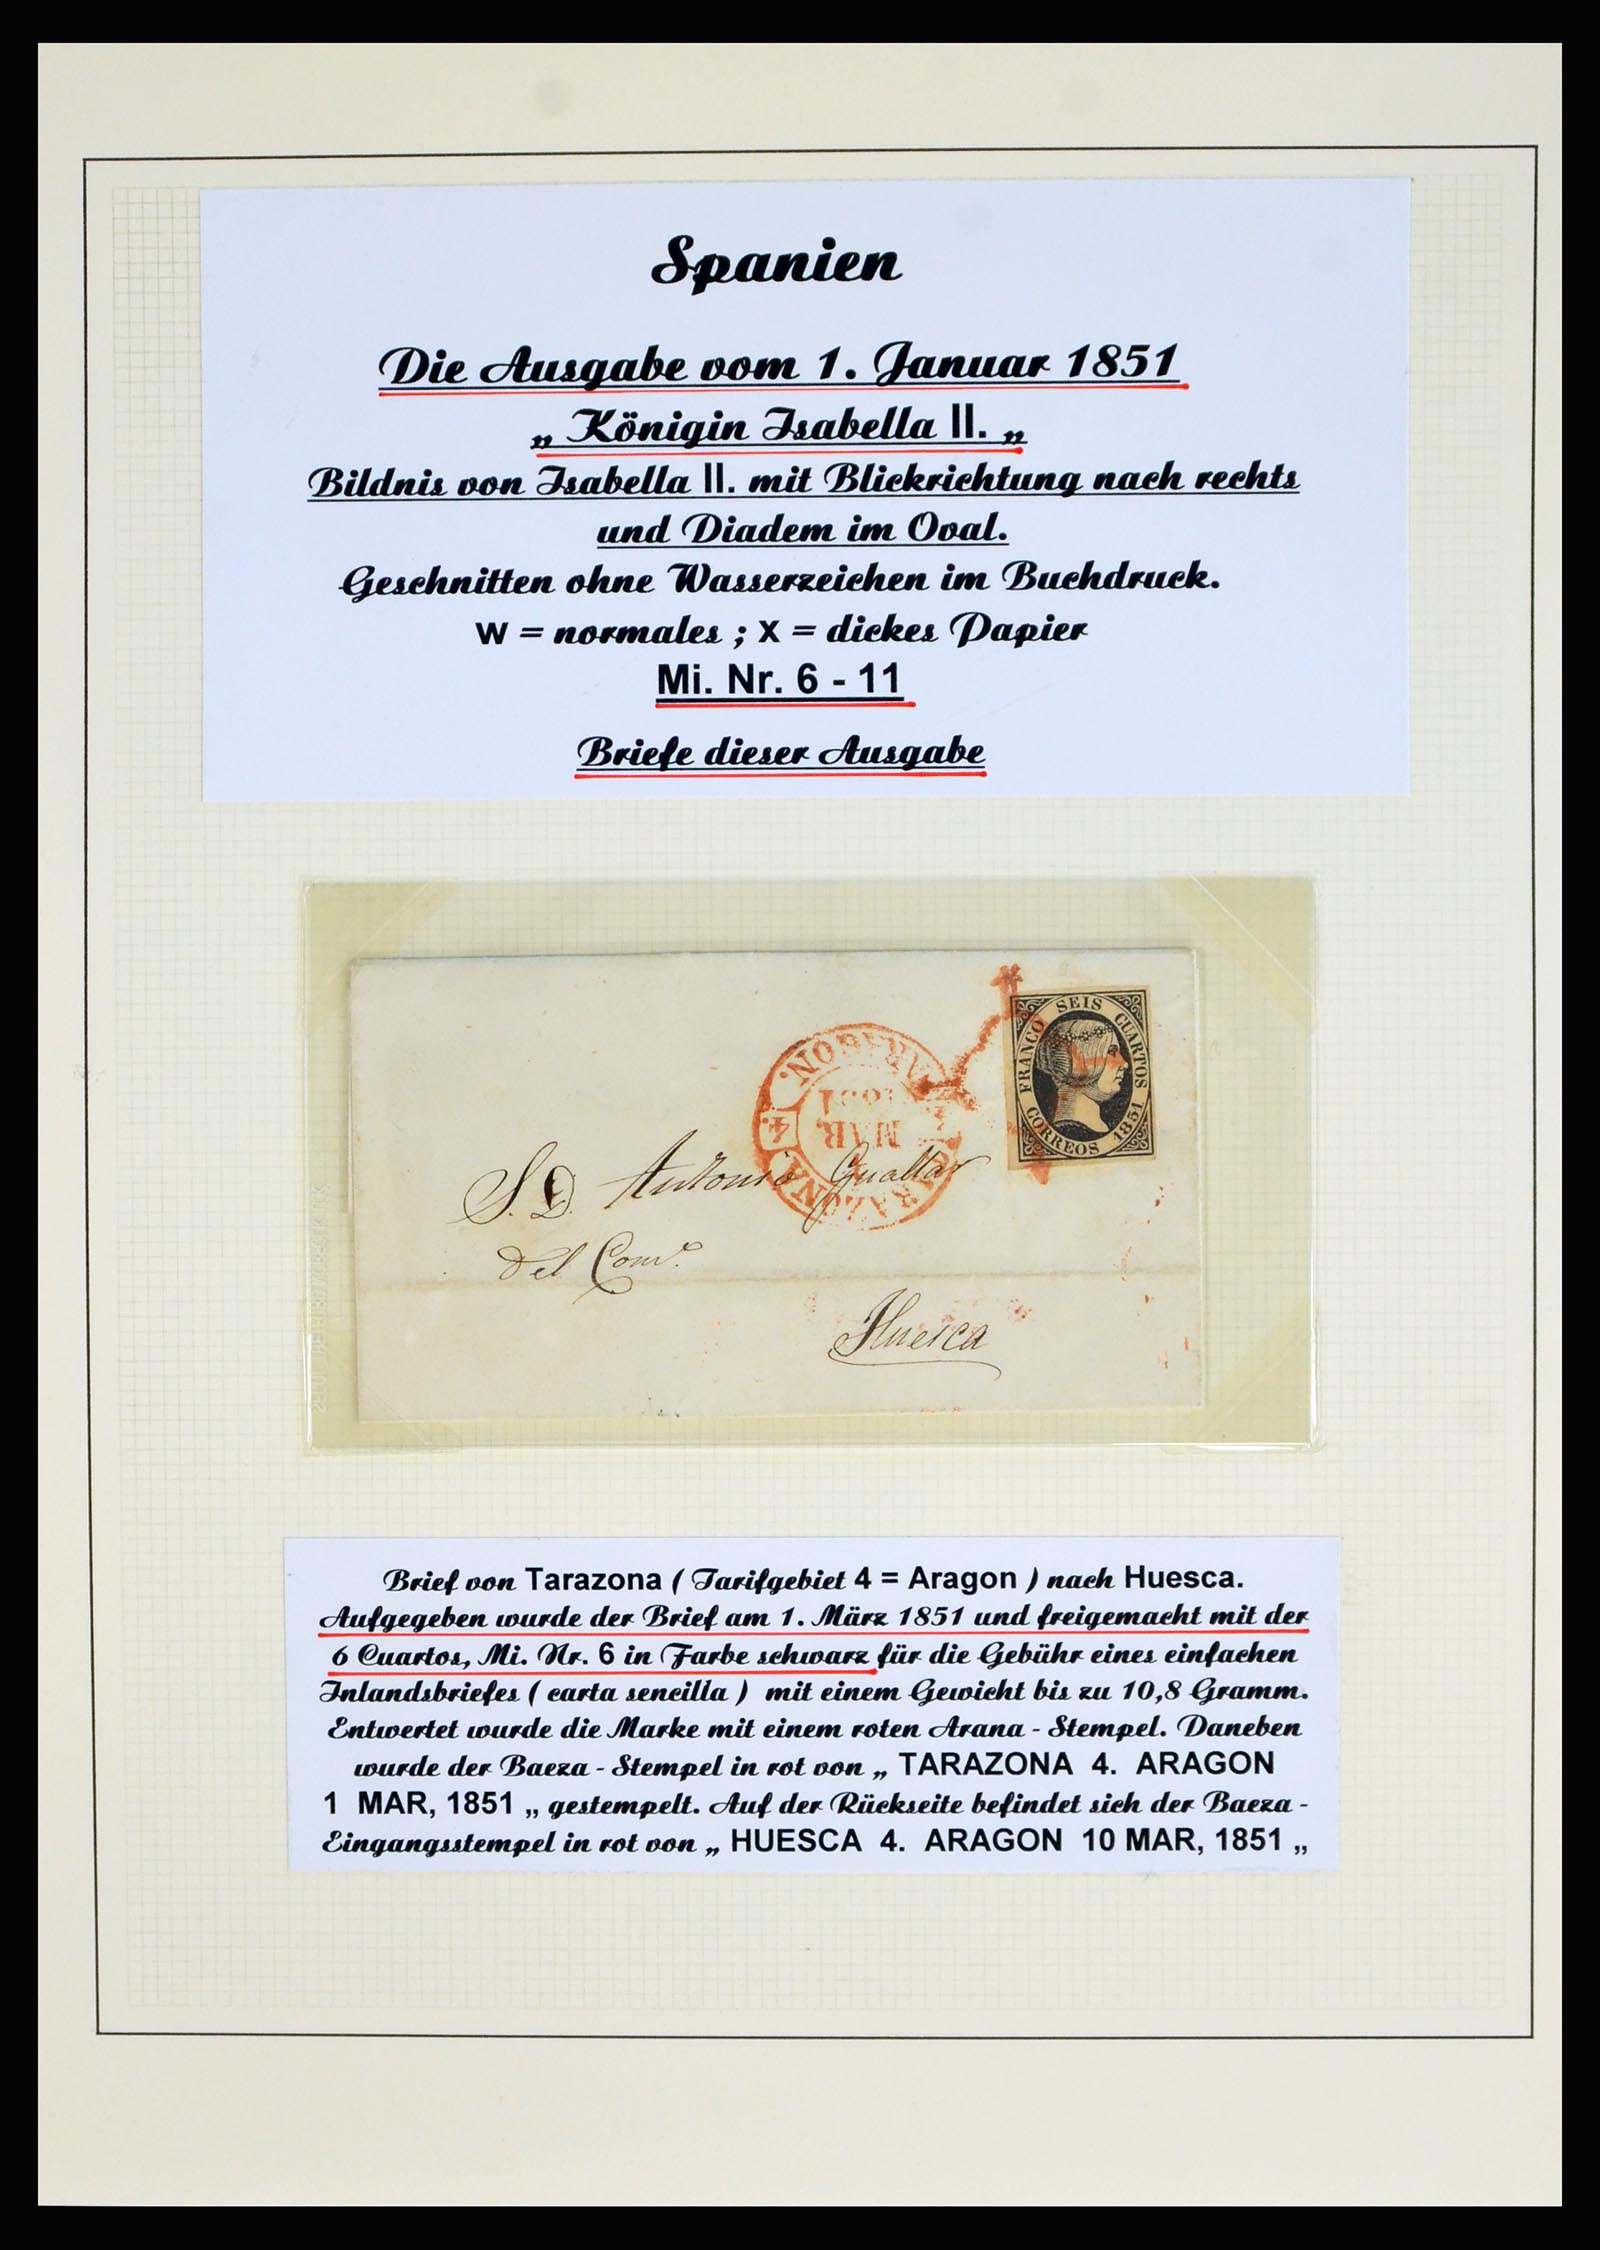 Spanien
Die Ausgabe vom 1. Januar 1851
„ Königin Isabella II. „
Bildnis von Isabella II. mit Blickrichtung nach rechts
und Diadem im Oval.
Geschnitten ohne Wasserzeichen im Buchdruck.
W = normales ; X = dickes Papier
Mi. Nr. 6 - 11
Briefe dieser Ausgabe
FRANCO SEIS CUARTOS
CORREOS 1851
TARAZONA
4.
MAR
1851
S. D. Antonio Guallar
Del Comº.
Huesca
Brief von Tarazona ( Tarifgebiet 4 = Aragon ) nach Huesca.
Aufgegeben wurde der Brief am 1. März 1851 und freigemacht mit der
6 Cuartos, Mi. Nr. 6 in Farbe schwarz für die Gebühr eines einfachen
Inlandsbriefes ( carta sencilla ) mit einem Gewicht bis zu 10,8 Gramm.
Entwertet wurde die Marke mit einem roten Arana - Stempel. Daneben
wurde der Baeza - Stempel in rot von „ TARAZONA 4. ARAGON
1 MAR, 1851 „ gestempelt. Auf der Rückseite befindet sich der Baeza -
Eingangsstempel in rot von „ HUESCA 4. ARAGON 10 MAR, 1851 „